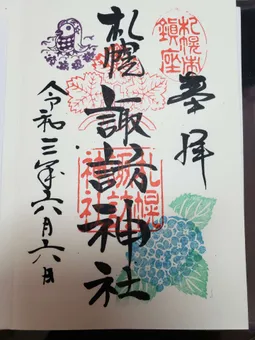 奉拝
札幌市鎮座
札幌諏訪神社
札幌諏訪神社
令和三年六月六日